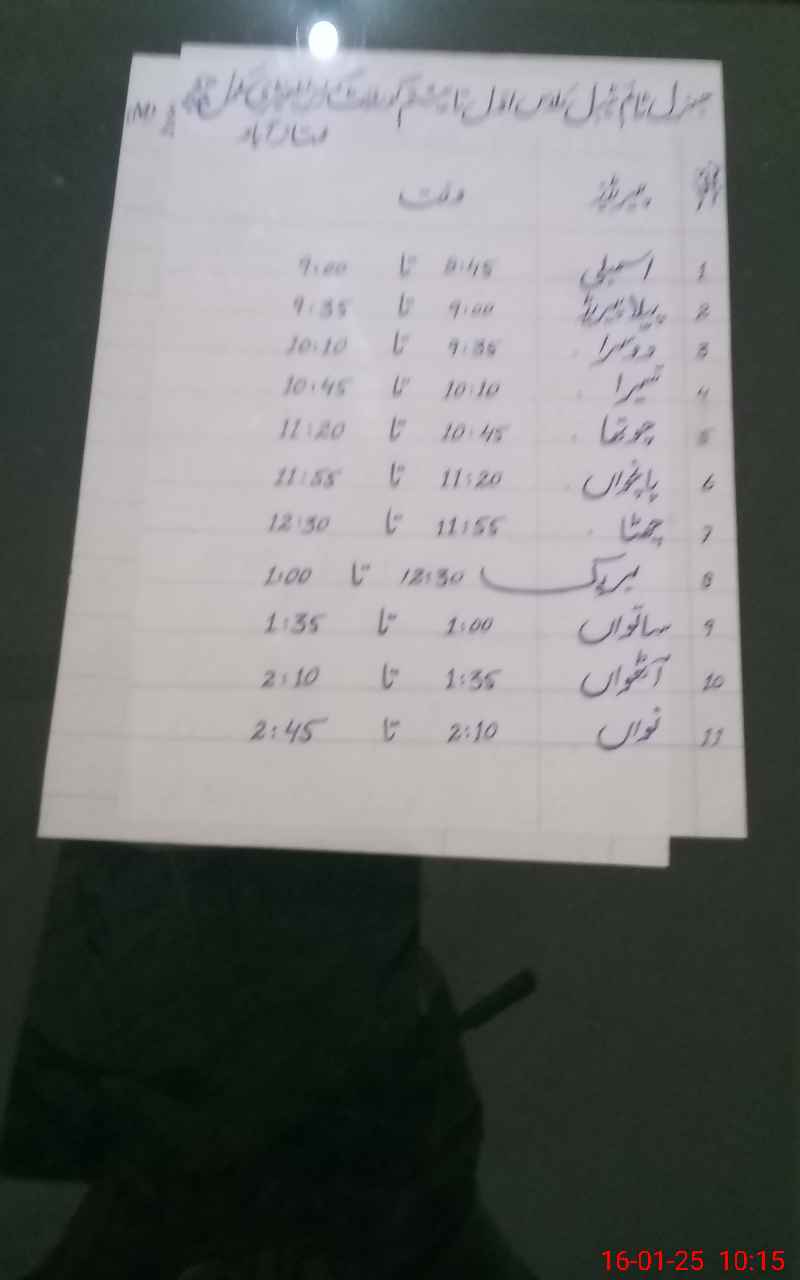 جنرل ٹائم ٹیبل کلاس اول تا ہشتم گورنمنٹ
(M)
پیریڈ وقت
1 اسمبلی 8:45 تا 9:00
2 پہلا پیریڈ 9:00 تا 9:35
3 دوسرا 9:35 تا 10:10
4 تیسرا 10:10 تا 10:45
5 چوتھا 10:45 تا 11:20
6 پانچواں 11:20 تا 11:55
7 چھٹا 11:55 تا 12:30
8 بریک 12:30 تا 1:00
9 ساتواں 1:00 تا 1:35
10 آٹھواں 1:35 تا 2:10
11 نواں 2:10 تا 2:45
16-01-25 10:15